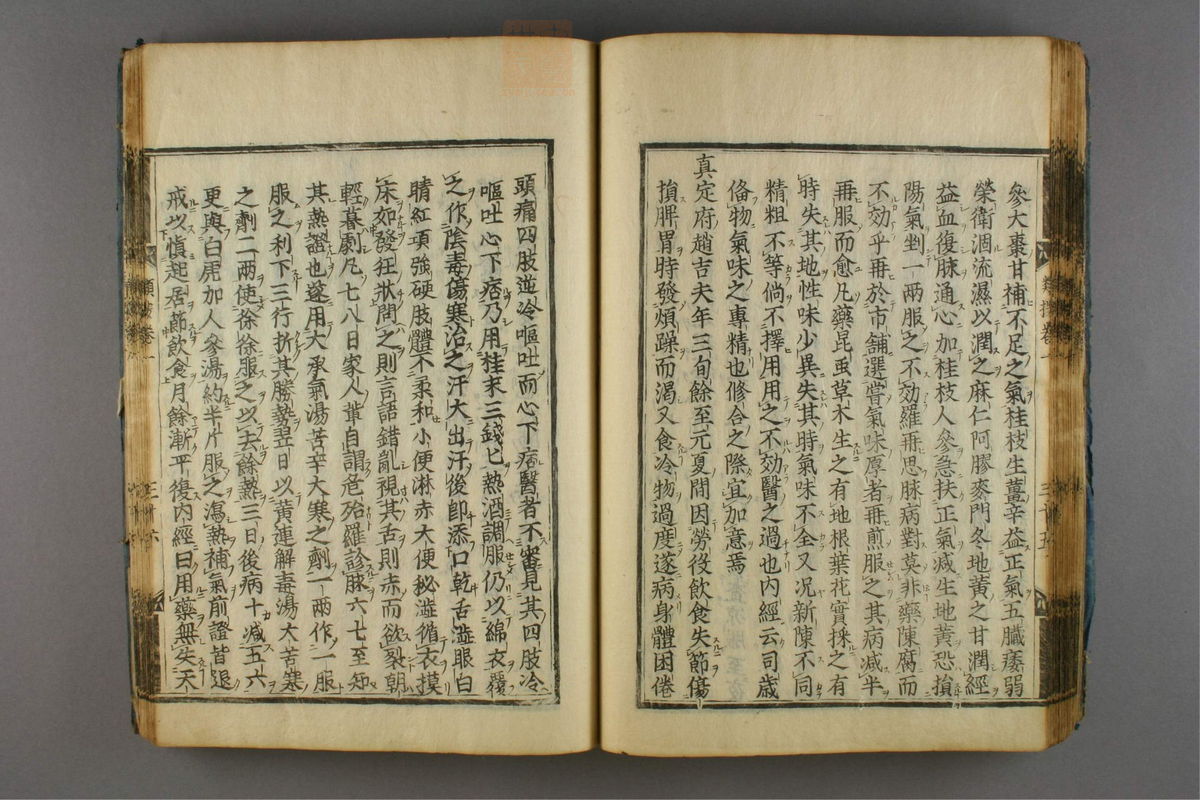 參大棗甘補不足之氣桂枝生薑辛益正氣五臟痿弱
榮衛涸流濕以潤之麻仁阿膠麥門冬地黃之甘潤經
益血復脉通心加桂枝人參急扶正氣减生地黃恐損
陽氣剉一兩服之不効羅再思脉病對莫非藥陳腐而
不効乎再於市舖選嘗氣味厚者再煎服之其病减半
再服而愈凡藥昆虫草木生之有地根葉花實採之有
時失其地性味少異失其時氣味不全又况新陳不同
精粗不等倘不擇用用之不効醫之過也内經云司歲
偹物氣味之專精也修合之際宜加意焉
真定府趙吉夫年三旬餘至元夏間因勞役飲食失節傷
損脾胃時發煩躁而渴又食冷物過度遂病身體困倦
頭痛四肢逆冷嘔吐而心下痞醫者不審見其四肢冷
嘔吐心下痞乃用桂末三錢匕熱酒調服仍以綿衣覆
之作陰毒傷寒治之汗大出汗後即添口乾舌澁眼白
睛紅項強硬肢體不柔和小便淋赤大便秘澁循衣摸
床如發狂狀問之則言語錯亂視其舌則赤而欲裂朝
輕暮劇凡七八日家人輩自謂危殆羅診脉六七至知
其熱證也遂用大承氣湯苦辛大寒之劑一兩作一服
服之利下三行折其勝勢翌日以黃連解毒湯大苦寒
之劑二兩使徐徐服之以去餘熱三日後病十减五六
更與白虎加人參湯約半斤服之瀉熱補氣前證皆退
戒以慎起居節飲食月餘漸平復内經曰用藥無失天